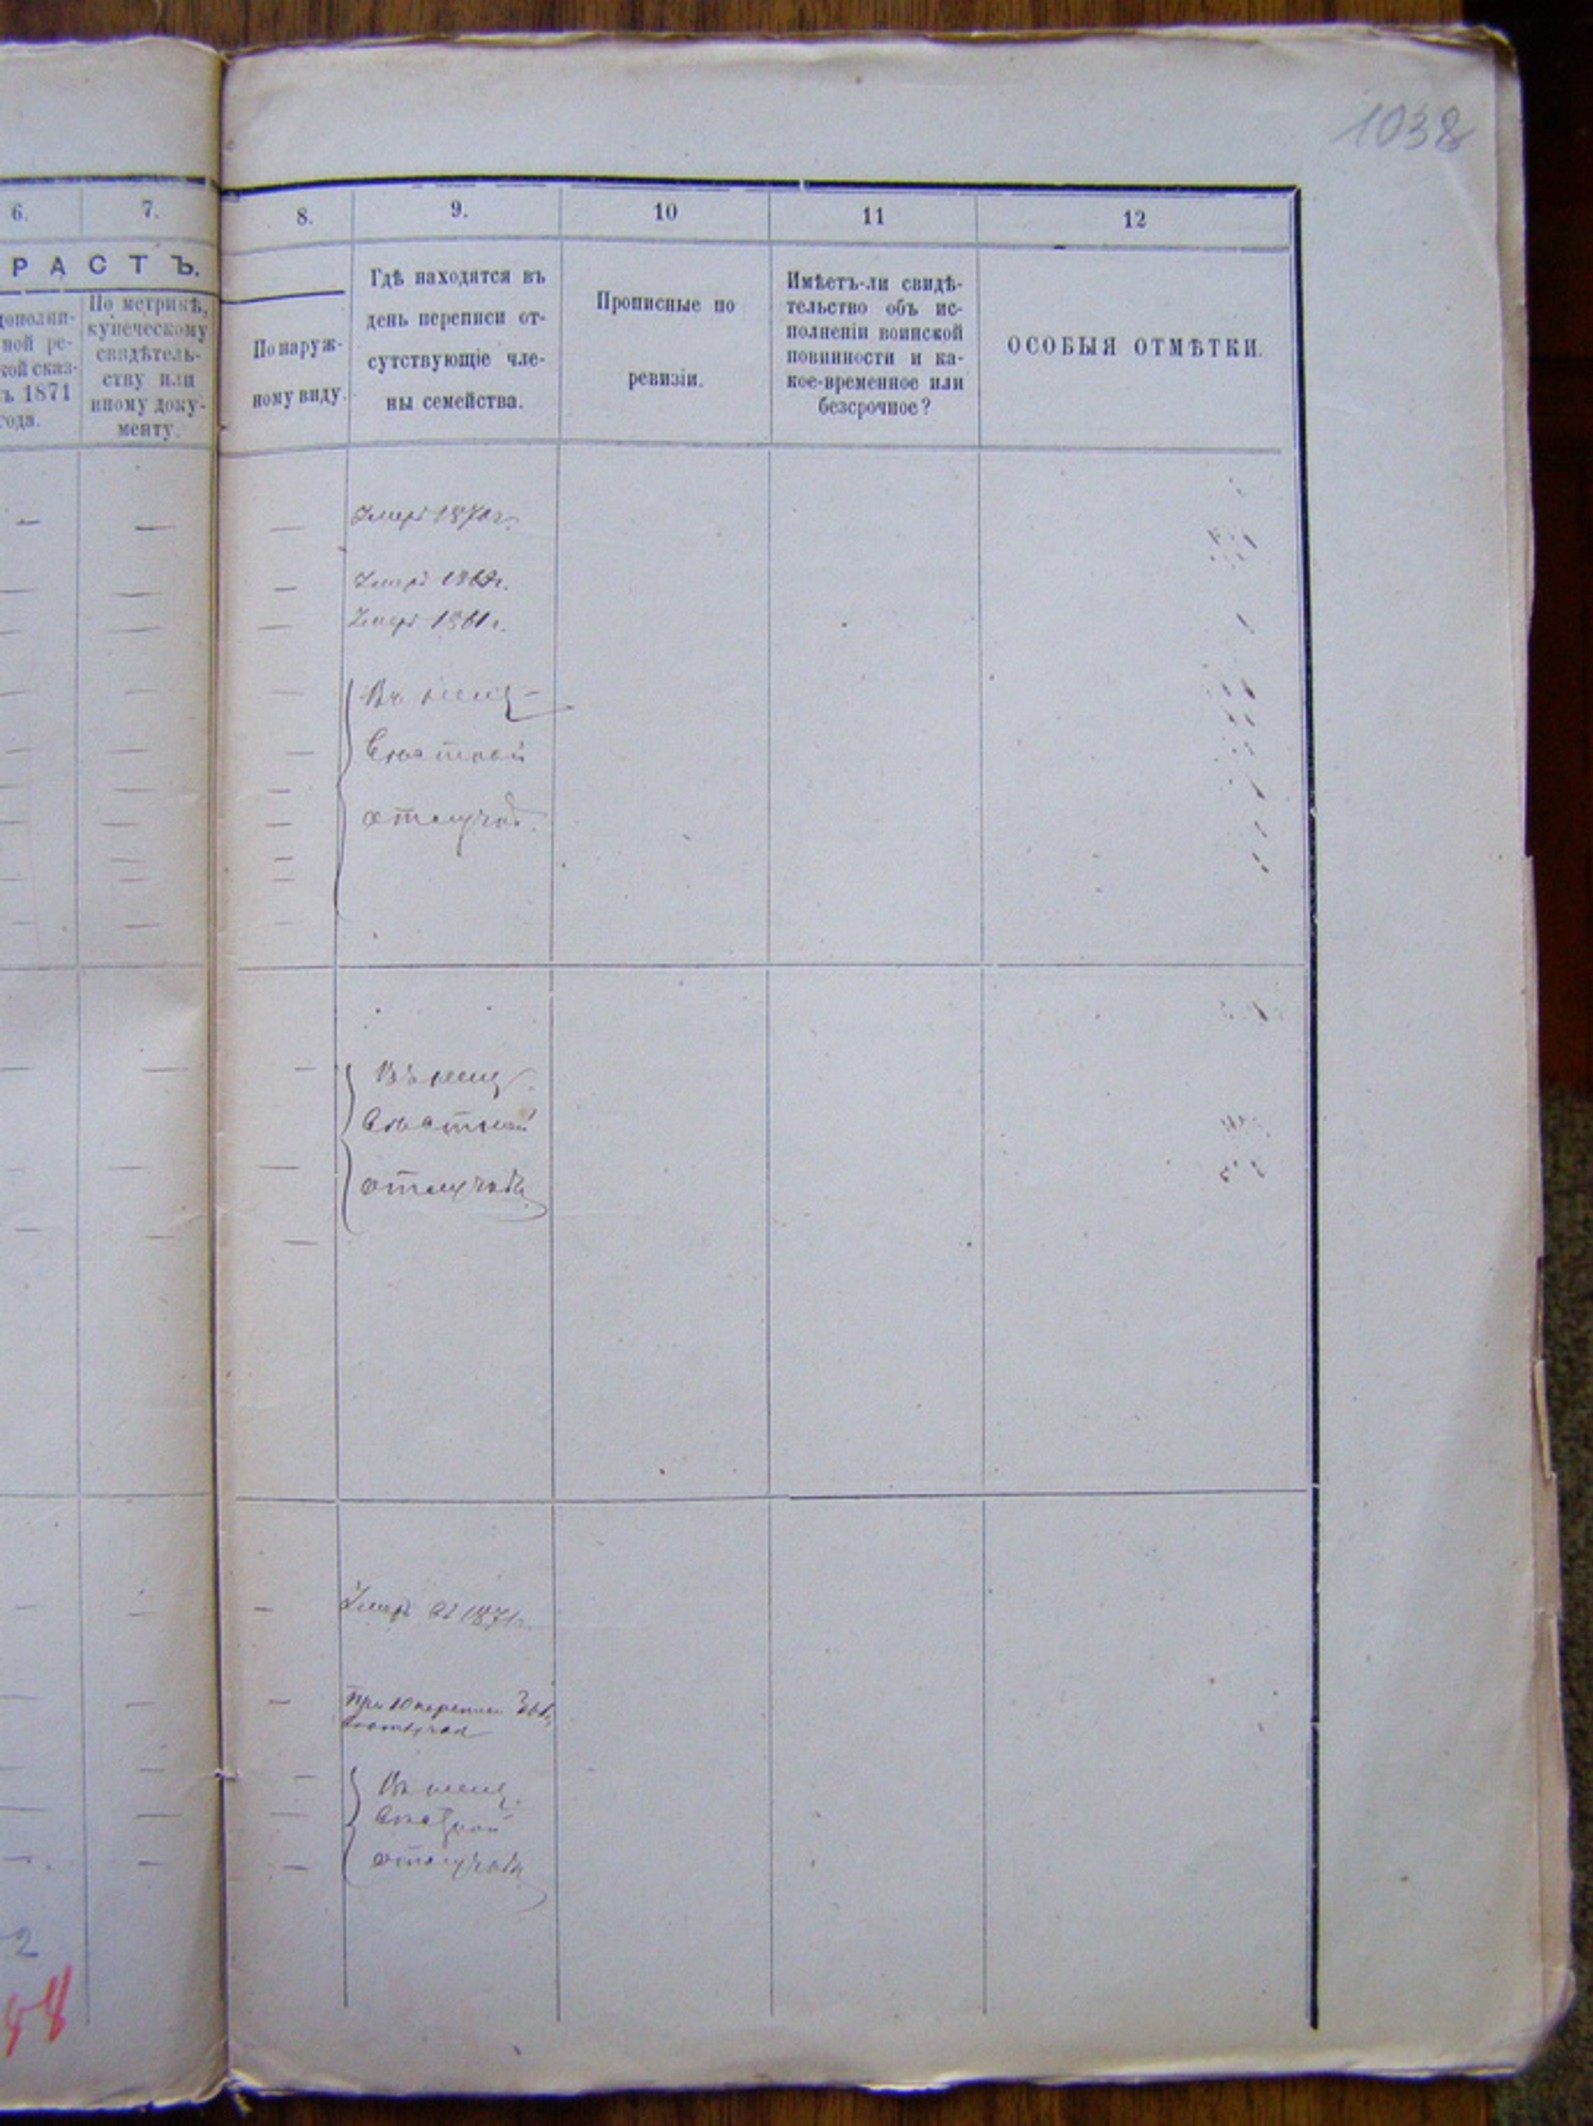 1038
6.
7.
8.
9.
10
11
12
РАСТЪ.
дополни-
ной ре-
кой сказ-
ъ 1871
года.
По метрикѣ,
купеческому
свидѣтель-
ству или
иному доку-
менту.
По наруж-
ному виду.
Гдѣ находятся въ
день переписи от-
сутствующіе чле-
ны семейства.
Прописные по
ревизіи.
Имѣетъ-ли свидѣ-
тельство объ ис-
полненіи воинской
повинности и ка-
кое-временное или
безсрочное?
ОСОБЫЯ ОТМѢТКИ.
Умеръ 1870 г.
Умеръ
Умеръ 1861 г.
Въ неиз-
вѣстной
отлучкѣ.
Въ неиз
вѣстной
отлучкѣ
Умеръ въ 1871 г.
При 10 переписи
Въ неиз.
вѣстной
отлучкѣ
2